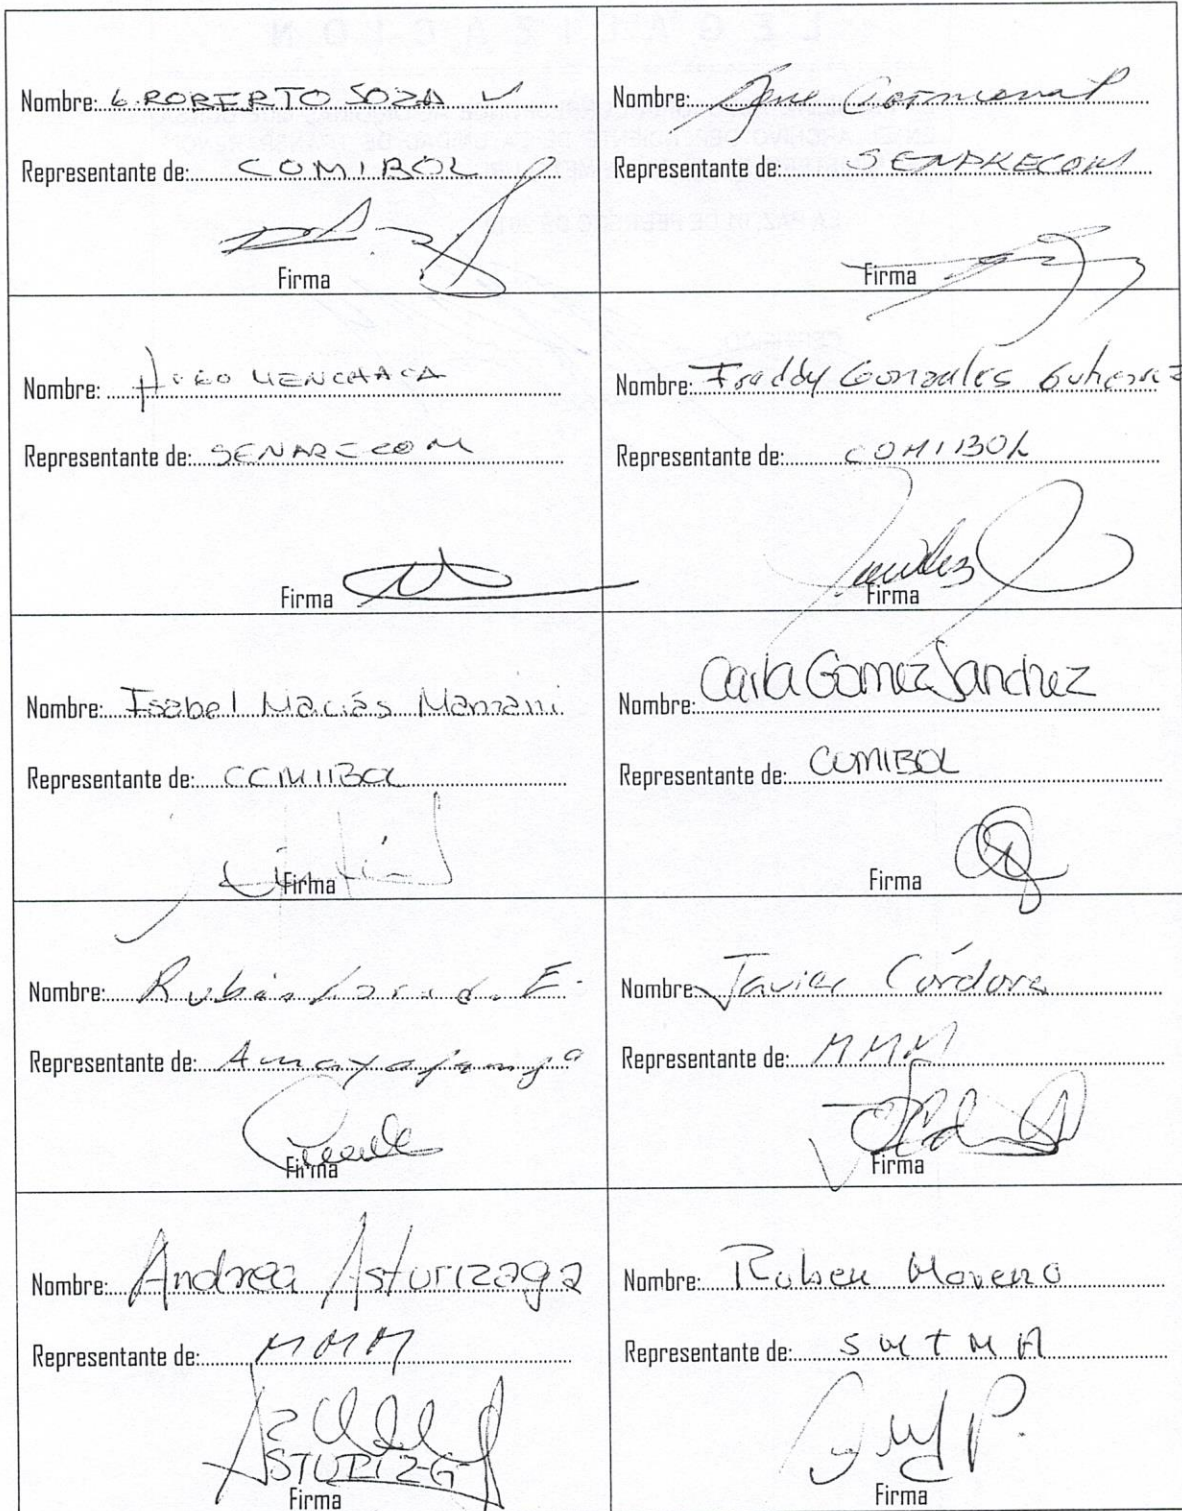 Nombre: L. ROBERTO SOZA V
Representante de: COMIBOL
Firma
Nombre: Carmona P
Representante de: SENARECOM
Firma
Nombre: HUGO MENCHACA
Representante de: SENARECOM
Firma
Nombre: Freddy Gonzales Gutierrez
Representante de: COMIBOL
Firma
Nombre: Isabel Macías Mamani
Representante de: COMIBOL
Firma
Nombre: Carla Gomez Sanchez
Representante de: COMIBOL
Firma
Nombre: Rubén E.
Representante de:
Firma
Nombre: Javier Córdova
Representante de: MMM
Firma
Nombre: Andrea Asturizaga
Representante de: MMM
ASTURIZG
Firma
Nombre: Ruben Moreno
Representante de:
Firma